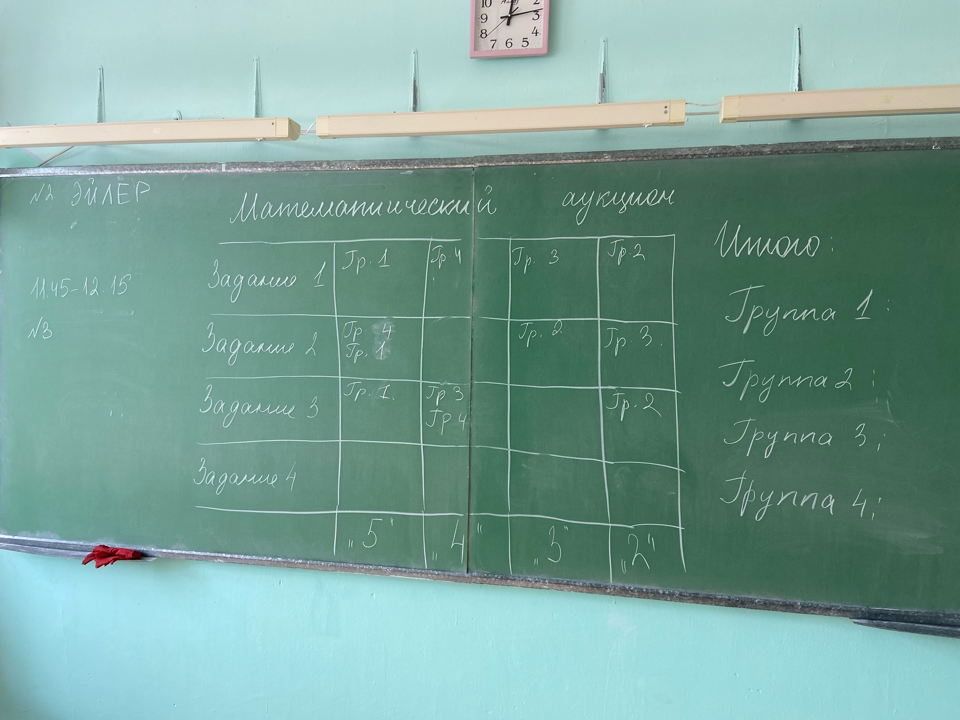 10 2
9 3
8 4
7 6 5
№2 ЭЙЛЕР
Математический аукцион
Итого:
Задание 1 Гр. 1 Гр. 4 Гр. 3 Гр. 2
11.45-12.15
№3
Группа 1:
Задание 2 Гр. 4 Гр. 2 Гр. 3.
Гр. 1
Группа 2;
Задание 3 Гр. 1. Гр 3 Гр. 2
Гр 4
Группа 3;
Задание 4
Группа 4;
„5" „4" „3" „2"